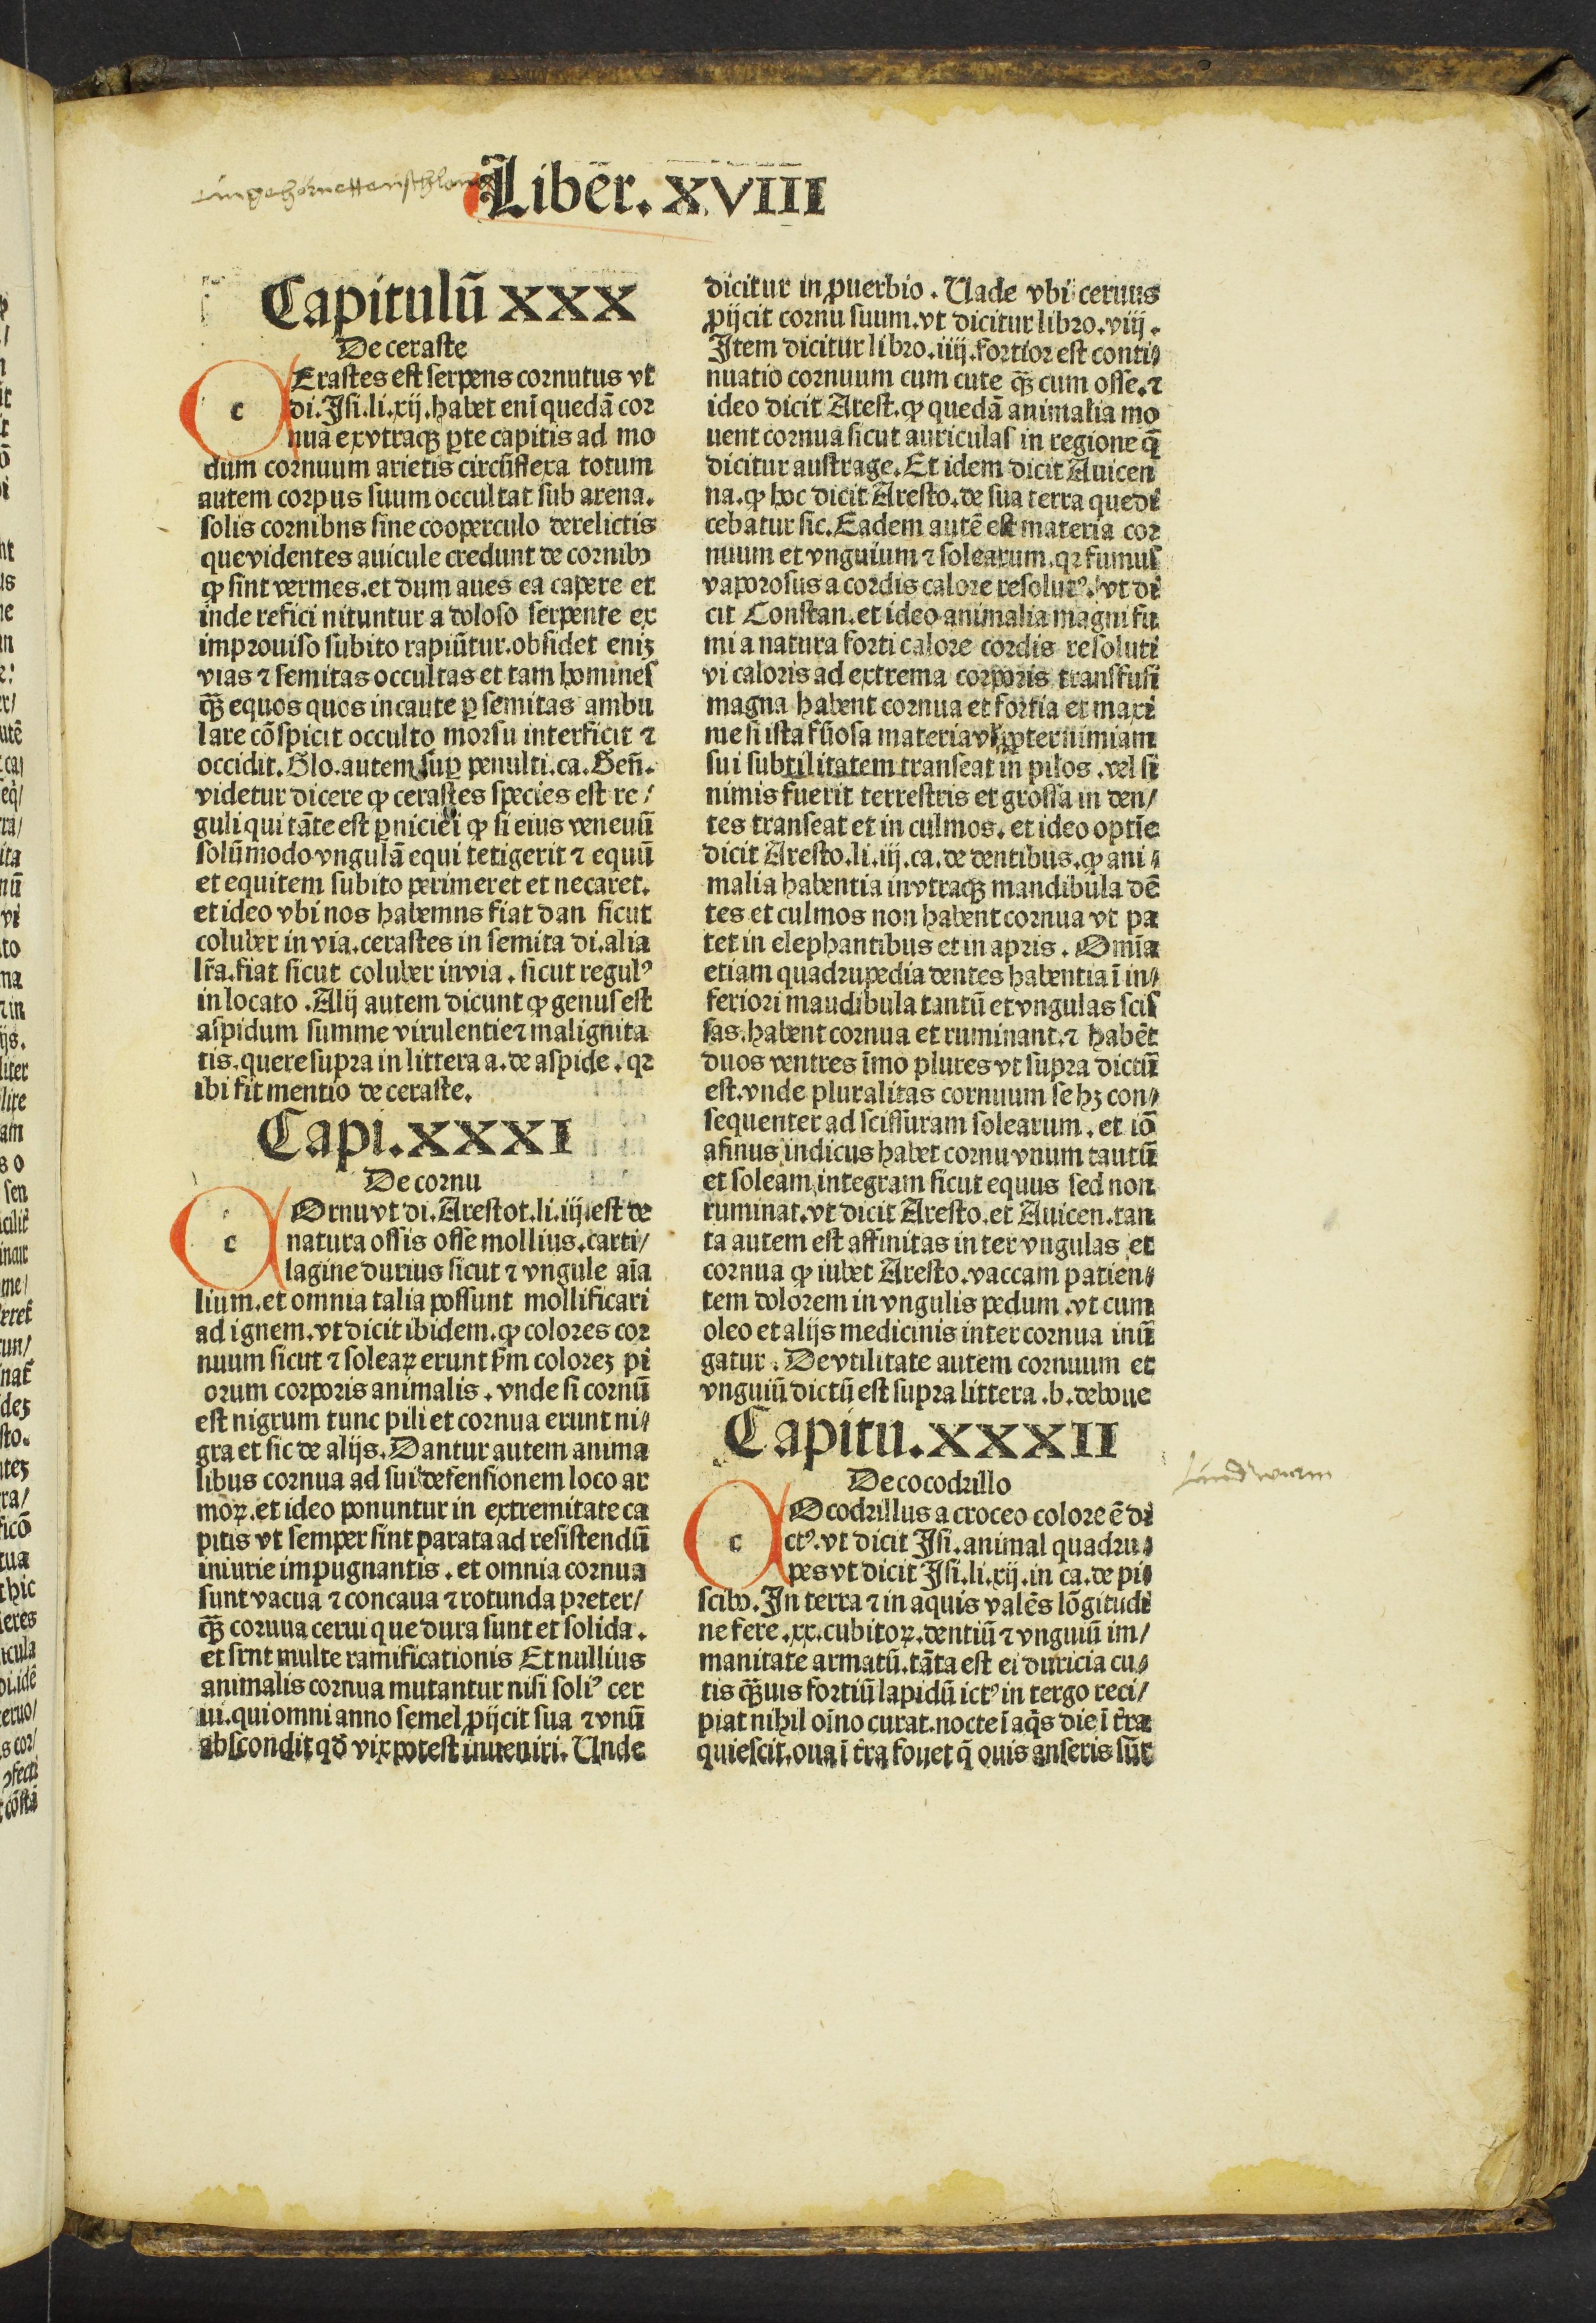 Liber. XVIII
Capitulū XXX
De ceraste
CErastes est serpens cornutus vt
di. Isi. li. xij. habet enī quedā cor
nua ex vtraqꝫ ꝑte capitis ad mo
dum cornuum arietis circūflexa totum
autem corpus suum occultat sub arena.
solis cornibns sine cooperculo derelictis
que videntes auicule credunt de cornibꝰ
ꝙ sint vermes. et dum aues ea capere et
inde refici nituntur a doloso serpente ex
improuiso subito rapiūtur. obsidet eniꝫ
vias ⁊ semitas occultas et tam homines
qꝫ̄ equos quos incaute ꝑ semitas ambu
lare cōspicit occulto morsu interficit ⁊
occidit. Glo. autem suꝑ penulti. ca. Geñ.
videtur dicere ꝙ cerastes species est re/
guli qui tāte est ꝑniciei ꝙ si eius veneuū
solūmodo vngulā equi tetigerit ⁊ equū
et equitem subito perimeret et necaret.
et ideo vbi nos habemns fiat dan sicut
coluber in via. cerastes in semita di. alia
lr̄a. fiat sicut coluber in via. sicut regulꝰ
in locato. Alij autem dicunt ꝙ genus est
aspidum summe virulentie ⁊ malignita
tis. quere supra in littera a. de aspide. qꝛ
ibi fit mentio de ceraste.
Capi. XXXI
De cornu
COrnu vt di. Arestot. li. iij. est de
natura ossis osse mollius. carti/
lagine durius sicut ⁊ vngule aīa
lium. et omnia talia possunt mollificari
ad ignem. vt dicit ibidem. ꝙ colores cor
nuum sicut ⁊ soleaꝝ erunt ẜm coloreꝫ pi
orum corporis animalis. vnde si cornū
est nigrum tunc pili et cornua erunt ni/
gra et sic de alijs. Dantur autem anima
libus cornua ad sui defensionem loco ar
moꝝ. et ideo ponuntur in extremitate ca
pitis vt semper sint parata ad resistendū
iniurie impugnantis. et omnia cornua
sunt vacua ⁊ concaua ⁊ rotunda preter/
qꝫ̄ coruua cerui que dura sunt et solida.
et srnt multe ramificationis Et nullius
animalis cornua mutantur nisi soliꝰ cer
ui. qui omni anno semel ꝓijcit sua ⁊ vnū
abscondit qd̄ vix potest inueniri. Unde
dicitur in ꝓuerbio. Uade vbi ceruus
ꝓijcit cornu suum. vt dicitur libro. viij.
Item dicitur libro. iiij. fortior est conti/
nuatio cornuum cum cute qꝫ̄ cum osse. ⁊
ideo dicit Arest. ꝙ quedā animalia mo
uent cornua sicut auriculas in regione q̄
dicitur austrage. Et idem dicit Auicen
na. ꝙ hoc dicit Aresto. de sua terra que di
cebatur sic. Eadem autē est materia cor
nuum et vnguium ⁊ solearum. qꝛ fumus
vaporosus a cordis calore resolutꝰ. vt di
cit Constan. et ideo animalia magni fu
mi a natura forti calore cordis resoluti
vi caloris ad extrema corporis transfusi
magna habent cornua et fortia et maxi
me si ista fūosa materia vł ꝓpter nimiam
sui subtilitatem transeat in pilos. vel si
nimis fuerit terrestris et grossa in den/
tes transeat et in culmos. et ideo optīe
dicit Aresto. li. iij. ca. de dentibus. ꝙ ani/
malia habentia in vtraqꝫ mandibula dē
tes et culmos non habent cornua vt pa
tet in elephantibus et in apris. Omīa
etiam quadrupedia dentes habentia ī in/
feriori maudibula tantū et vngulas scis
sas. habent cornua et ruminant. ⁊ habēt
duos ventres īmo plures vt supra dictū
est. vnde pluralitas cornuum se hꝫ con/
sequenter ad scissuram solearum. et iō
asinus indicus habet cornu vnum tautū
et soleam integram sicut equus sed non
ruminat. vt dicit Aresto. et Auicen. tan
ta autem est affinitas inter vngulas et
cornua ꝙ iubet Aresto. vaccam patien/
tem dolorem in vngulis pedum. vt cum
oleo et alijs medicinis inter cornua inū
gatur. De vtilitate autem cornuum et
vnguiū dictū est supra littera. b. de boue
Capitu. XXXII
De cocodrillo
COcodrillus a croceo colore ē di
ctꝰ. vt dicit Isi. animal quadru/
pes vt dicit Isi. li. xij. in ca. de pi/
scibꝰ. In terra ⁊ in aquis valēs lōgitudi
ne fere. xx. cubitoꝝ. dentiū ⁊ vnguiū im/
manitate armatū. tāta est ei duricia cu/
tis qꝫ̄uis fortiū lapidū ictꝰ in tergo reci/
piat nihil oīno curat. nocte ī aq̄s die ī tr̄a
quiescit. oua ī tr̄a fouet q̄ ouis anseris sūt